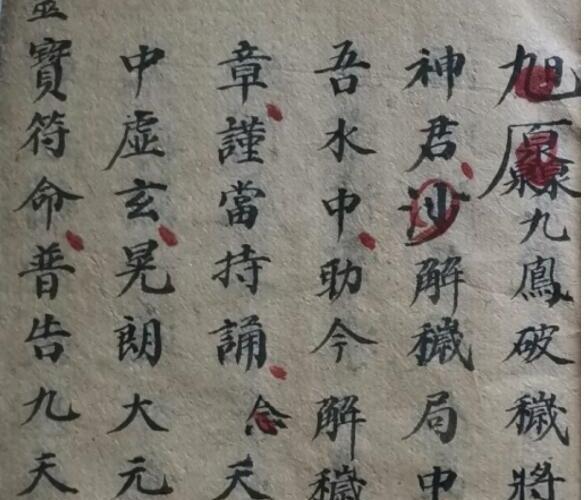 旭厵九鳳破穢將
神君解穢局中
吾水中助今解穢
章謹當持誦念天
中虚玄晃朗大元
寶符命普告九天